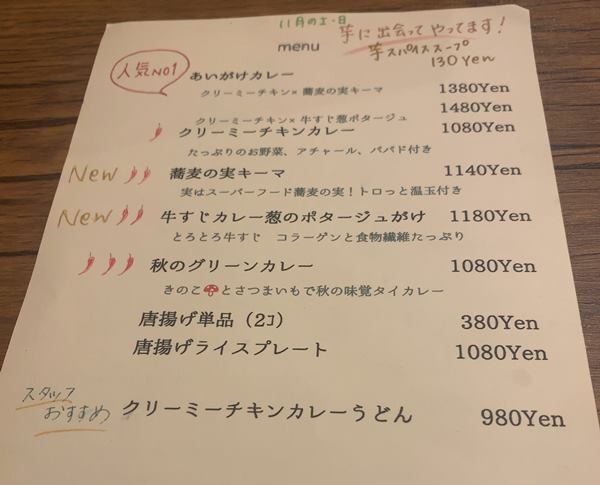 11月の土・日
芋に出会ってやってます!
menu
芋スパイススープ
130yen
人気NO1
あいがけカレー
クリーミーチキン×蕎麦の実キーマ 1380Yen
1480Yen
クリーミーチキン×牛すじ葱ポタージュ
クリーミーチキンカレー 1080Yen
たっぷりのお野菜、アチャール、パパド付き
New 蕎麦の実キーマ 1140Yen
実はスーパーフード蕎麦の実!トロっと温玉付き
New 牛すじカレー葱のポタージュがけ 1180Yen
とろとろ牛すじ コラーゲンと食物繊維たっぷり
秋のグリーンカレー 1080Yen
きのこ🍄とさつまいもで秋の味覚タイカレー
唐揚げ単品(2コ) 380Yen
唐揚げライスプレート 1080Yen
スタッフ
おすすめ クリーミーチキンカレーうどん 980Yen